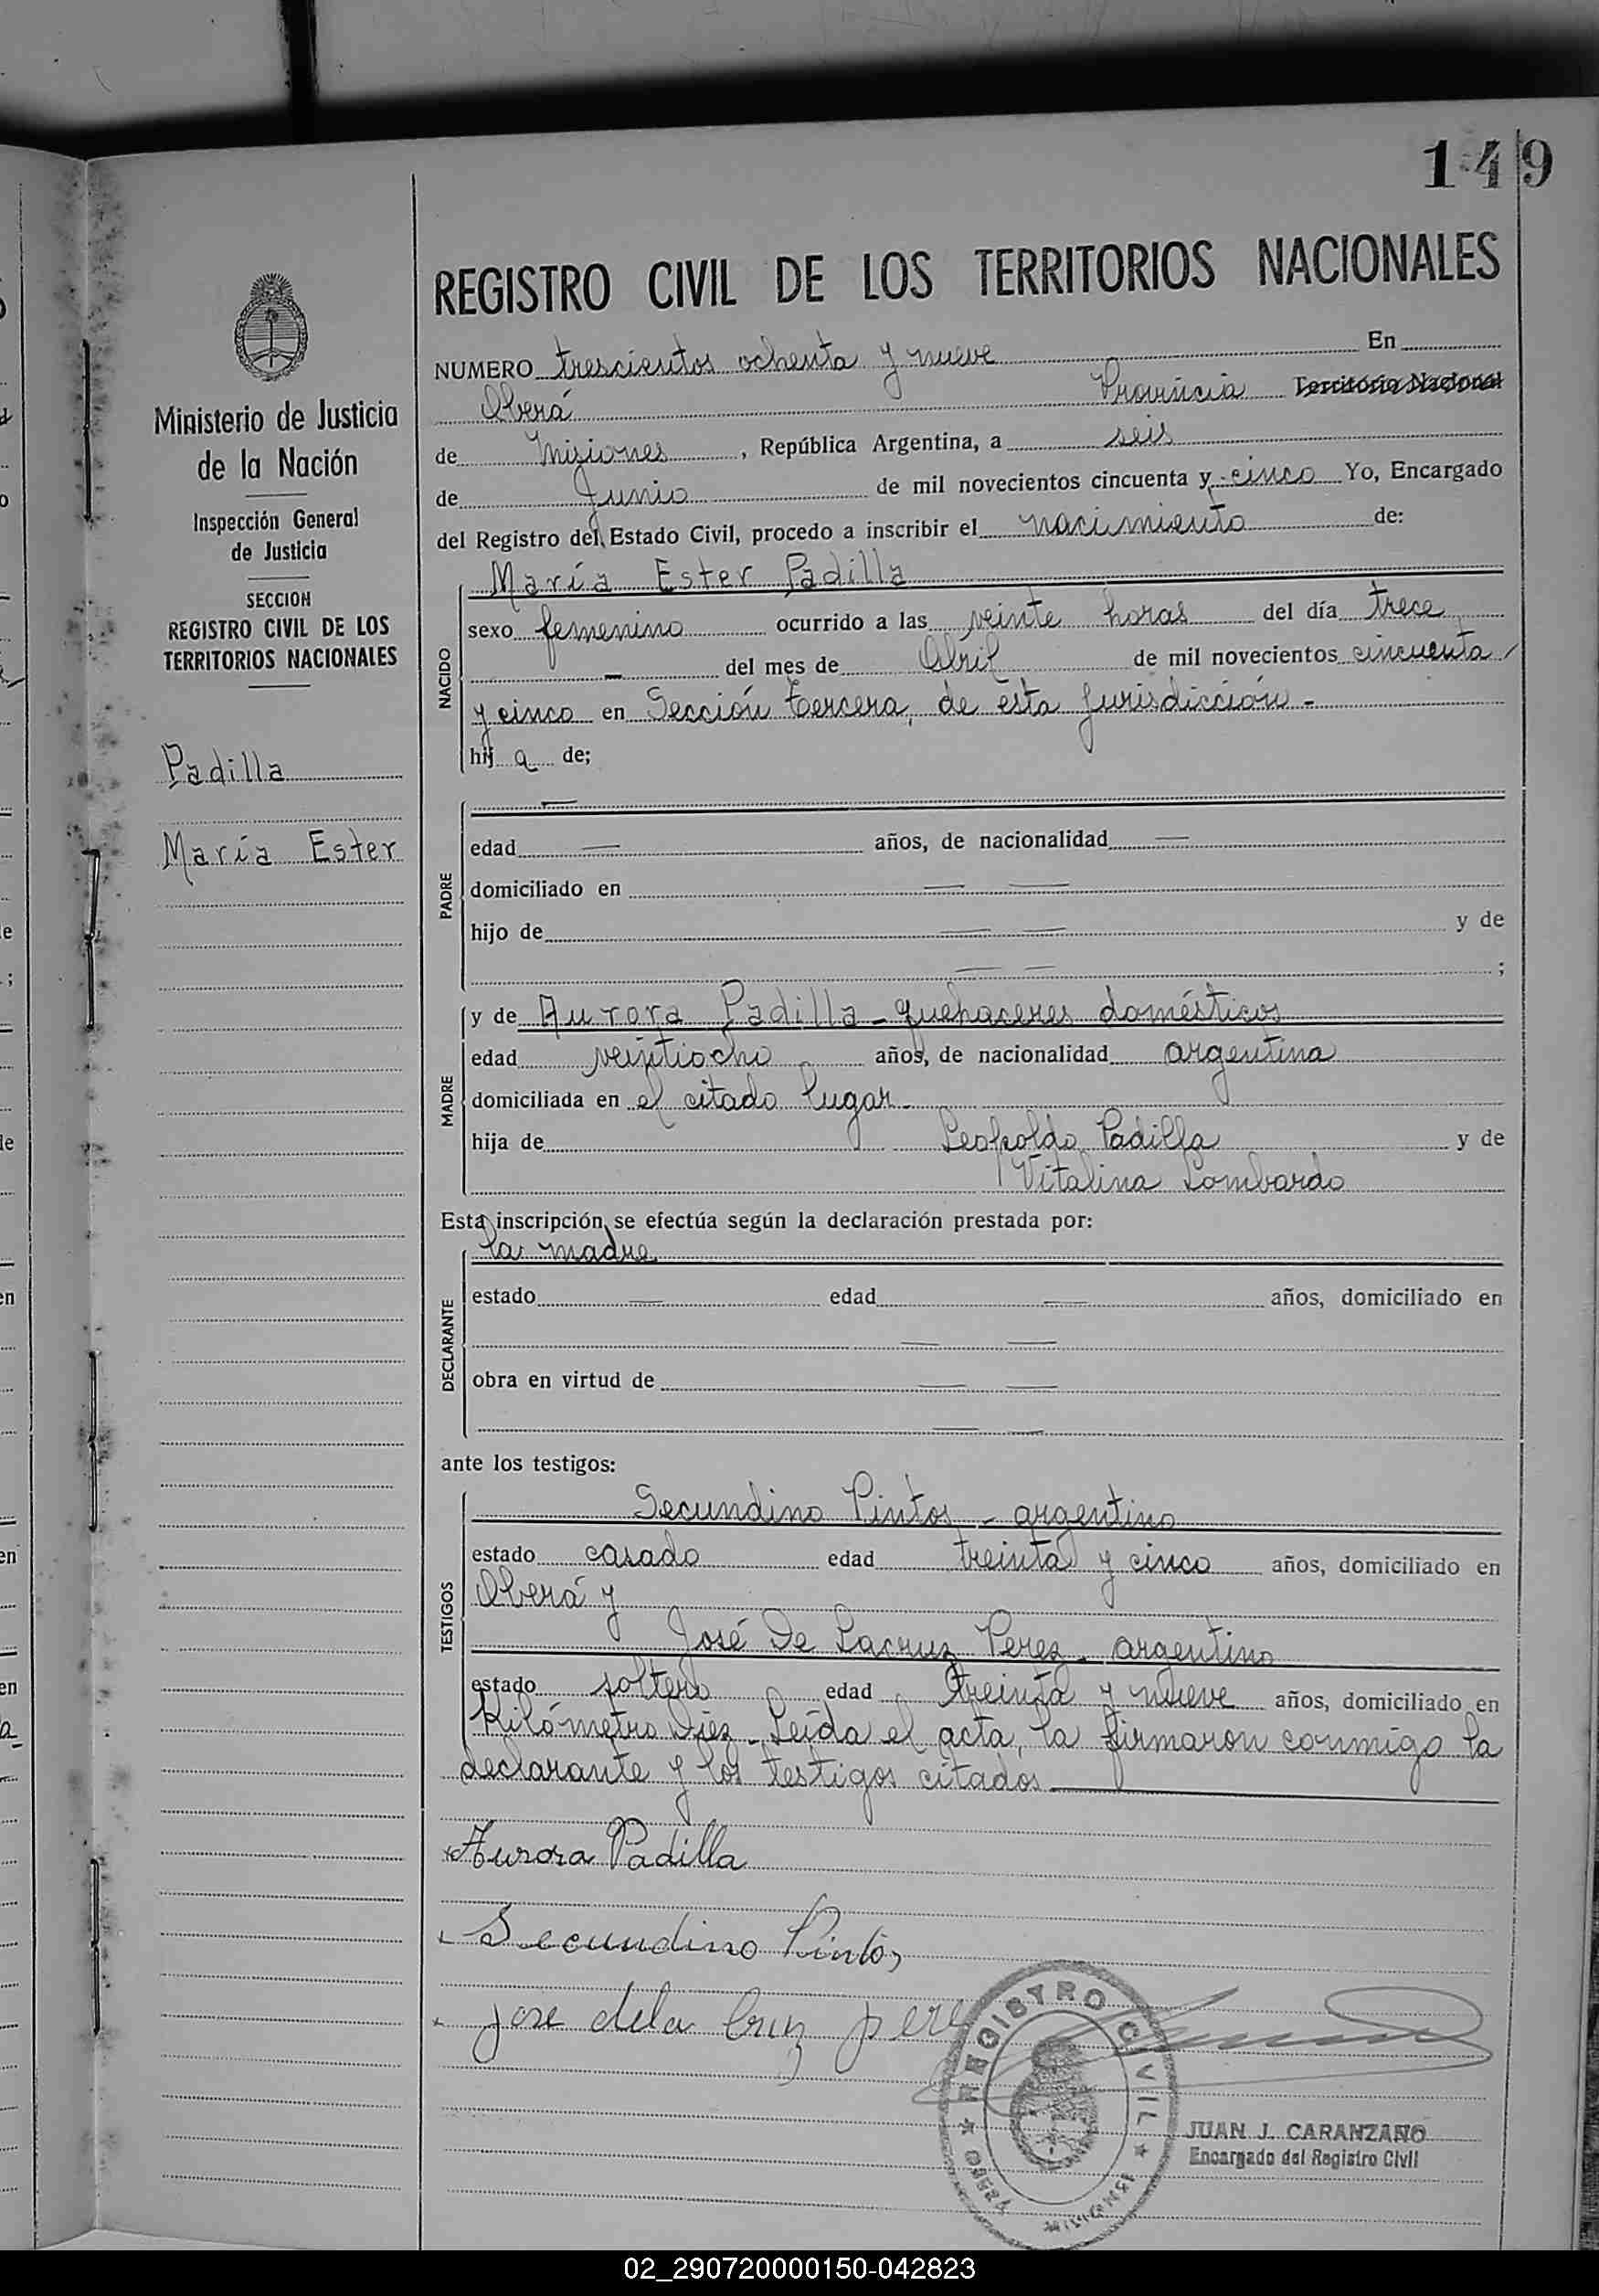 149
REGISTRO CIVIL DE LOS TERRITORIOS NACIONALES
Ministerio de Justicia
de la Nación
Inspección General
de Justicia
SECCION
REGISTRO CIVIL DE LOS
TERRITORIOS NACIONALES
Padilla
María Ester
NUMERO trescientos ochenta y nueve En
Oberá Provincia Territorio Nacional
de Misiones, República Argentina, a seis
de Junio de mil novecientos cincuenta y cinco Yo, Encargado
del Registro del Estado Civil, procedo a inscribir el nacimiento de:
María Ester Padilla
NACIDO
sexo femenino ocurrido a las veinte horas del día trece
— del mes de Abril de mil novecientos cincuenta
y cinco en Sección tercera, de esta jurisdicción -
hij a de;
—
PADRE
edad — años, de nacionalidad —
domiciliado en — —
hijo de — — y de
— — ;
MADRE
y de Aurora Padilla - quehaceres domésticos
edad veintiocho años, de nacionalidad argentina
domiciliada en el citado lugar -
hija de Leopoldo Padilla y de
Vitalina Lombardo
Esta inscripción se efectúa según la declaración prestada por:
la madre
DECLARANTE
estado — edad — años, domiciliado en
— —
obra en virtud de — —
— —
ante los testigos:
TESTIGOS
Secundino Pintos - argentino
estado casado edad treinta y cinco años, domiciliado en
Oberá y
José De Lacruz Perez - argentino
estado soltero edad treinta y nueve años, domiciliado en
Kilómetro Diez - Leída el acta, la firmaron conmigo la
declarante y los testigos citados
Aurora Padilla
Secundino Pintos
jose dela Cruz pere
REGISTRO CIVIL
OBERÁ
MISIONES
JUAN J. CARANZANO
Encargado del Registro Civil
02_290720000150-042823